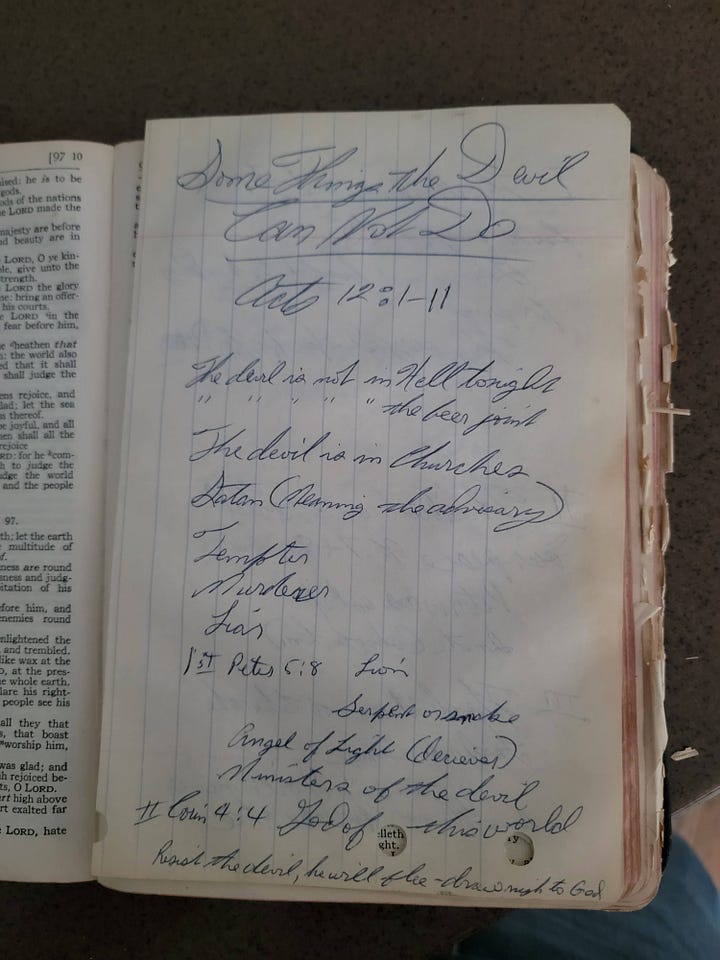 [97 10
ised: he is to be
gods.
ods of the nations
e LORD made the
majesty are before
nd beauty are in
LORD, O ye kin-
ple, give unto the
strength.
LORD the glory
me: bring an offer-
his courts.
e LORD in the
fear before him,
e heathen that
: the world also
ed that it shall
shall judge the
ens rejoice, and
lad; let the sea
s thereof.
be joyful, and all
hen shall all the
rejoice
RD: for he com-
h to judge the
udge the world
and the people
97.
th; let the earth
multitude of
f.
ness are round
sness and judg-
itation of his
efore him, and
enemies round
nlightened the
and trembled.
like wax at the
, at the pres-
e whole earth.
lare his right-
people see his
all they that
s, that boast
worship him,
was glad; and
h rejoiced be-
ts, O LORD.
rt high above
rt exalted far
e LORD, hate
Some Things the Devil
Can Not Do
Acts 12:1-11
The devil is not in Hell tonight
" " " " " the beer joint
The devil is in Churches
Satan (Meaning the advisary)
Tempter
Murderer
Liar
1st Peter 5:8 Lion
Serpent or snake
Angel of Light (deciever)
Ministers of the devil
II Corin 4:4 God of this world
lleth
ght.
Resist the devil, he will flee - draw nigh to God